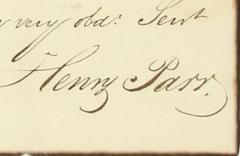 very old: Sent
Henry Parr.